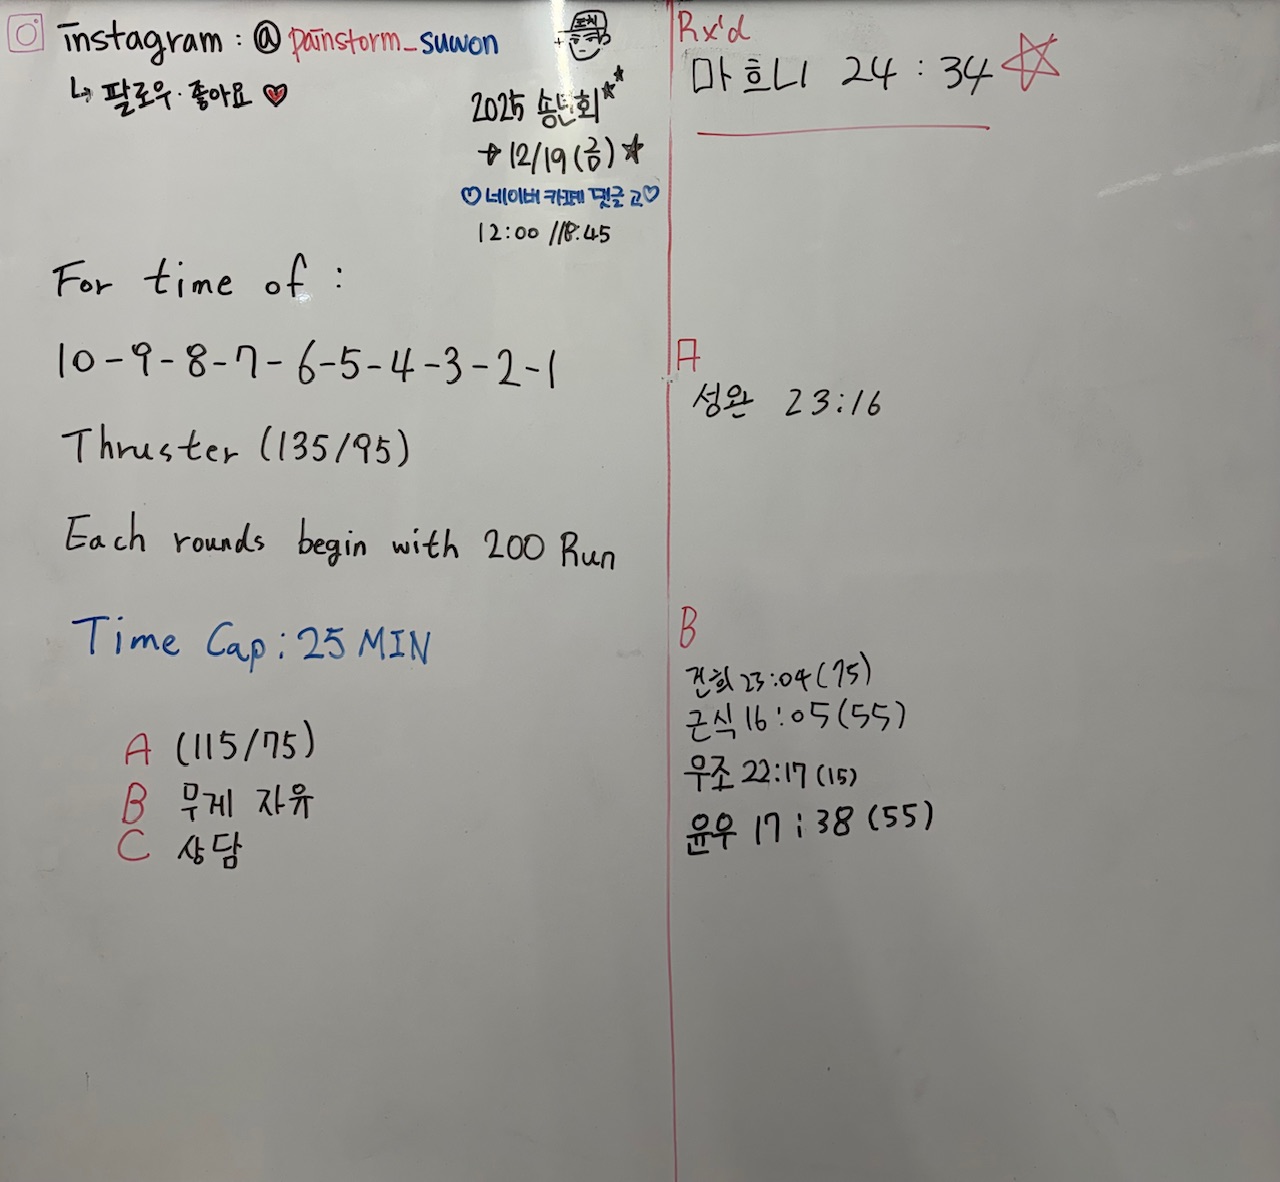 instagram : @ painstorm_suwon
↳ 팔로우·좋아요 ♥
2025 송년회
→ 12/19 (금) ★
♡ 네이버 카페 댓글 고 ♡
12:00 //18:45
For time of :
10-9-8-7-6-5-4-3-2-1
Thruster (135/95)
Each rounds begin with 200 Run
Time Cap : 25 MIN
A (115/75)
B 무게 자유
C 상담
Rx'd
마흐니 24 : 34
A
성완 23:16
B
건희 23:04 (75)
근식 16:05 (55)
우조 22:17 (15)
윤우 17 : 38 (55)